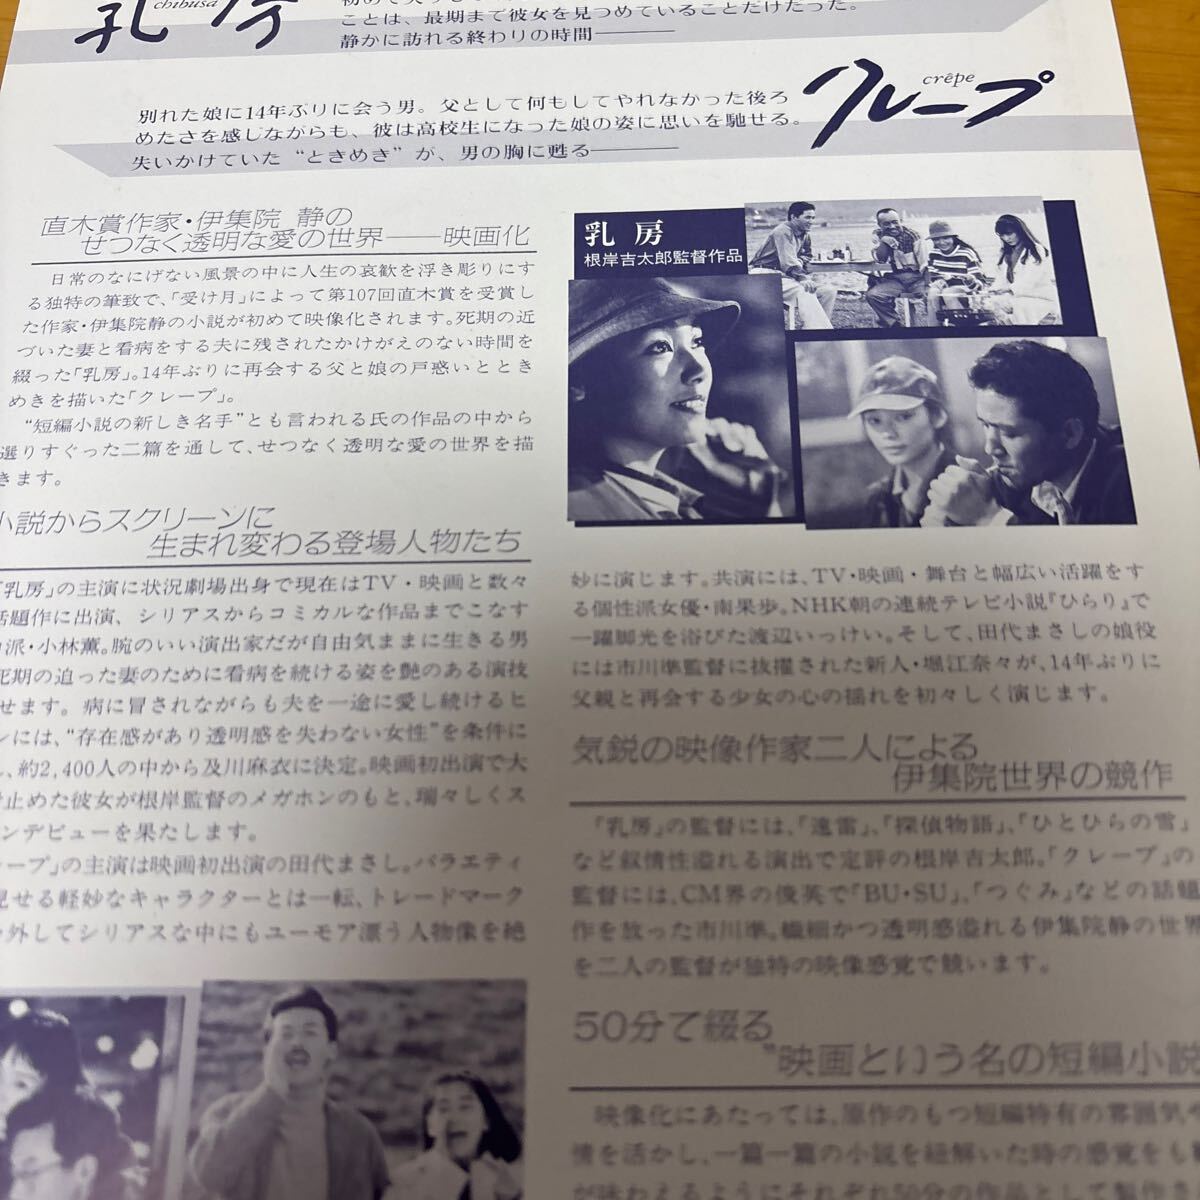 乳房
chibusa
ことは、最期まで彼女を見つめていることだけだった。
静かに訪れる終わりの時間――
クレープ
crêpe
別れた娘に14年ぶりに会う男。父として何もしてやれなかった後ろ
めたさを感じながらも、彼は高校生になった娘の姿に思いを馳せる。
失いかけていた“ときめき”が、男の胸に甦る――
直木賞作家・伊集院 静の
せつなく透明な愛の世界――映画化
日常のなにげない風景の中に人生の哀歓を浮き彫りにす
る独特の筆致で、「受け月」によって第107回直木賞を受賞し
た作家・伊集院静の小説が初めて映像化されます。死期の近
づいた妻と看病をする夫に残されたかけがえのない時間を
綴った「乳房」。14年ぶりに再会する父と娘の戸惑いととき
めきを描いた「クレープ」。
“短編小説の新しき名手”とも言われる氏の作品の中から
選りすぐった二篇を通して、せつなく透明な愛の世界を描
きます。
小説からスクリーンに
生まれ変わる登場人物たち
「乳房」の主演に状況劇場出身で現在はTV・映画と数々
話題作に出演、シリアスからコミカルな作品までこなす
派・小林薫。腕のいい演出家だが自由気ままに生きる男
死期の迫った妻のために看病を続ける姿を艶のある演技
せます。病に冒されながらも夫を一途に愛し続けるヒ
ンには、“存在感があり透明感を失わない女性”を条件に
、約2,400人の中から及川麻衣に決定。映画初出演で大
止めた彼女が根岸監督のメガホンのもと、瑞々しくス
ンデビューを果たします。
ープ」の主演は映画初出演の田代まさし。バラエティ
見せる軽妙なキャラクターとは一転、トレードマーク
外してシリアスな中にもユーモア漂う人物像を絶
乳房
根岸吉太郎監督作品
妙に演じます。共演には、TV・映画・舞台と幅広い活躍をす
る個性派女優・南果歩。NHK朝の連続テレビ小説『ひらり』で
一躍脚光を浴びた渡辺いっけい。そして、田代まさしの娘役
には市川準監督に抜擢された新人・堀江奈々が、14年ぶりに
父親と再会する少女の心の揺れを初々しく演じます。
気鋭の映像作家二人による
伊集院世界の競作
「乳房」の監督には、「遠雷」、「探偵物語」、「ひとひらの雪」
など叙情性溢れる演出で定評の根岸吉太郎。「クレープ」の
監督には、CM界の俊英で「BU・SU」、「つぐみ」などの話題
作を放った市川準。繊細かつ透明感溢れる伊集院静の世界
を二人の監督が独特の映像感覚で競います。
50分で綴る
“映画という名の短編小説
映像化にあたっては、原作のもつ短編特有の雰囲気や
情を活かし、一篇一篇の小説を紐解いた時の感覚をも
が味わえるようにそれぞれ50分の作品として製作さ